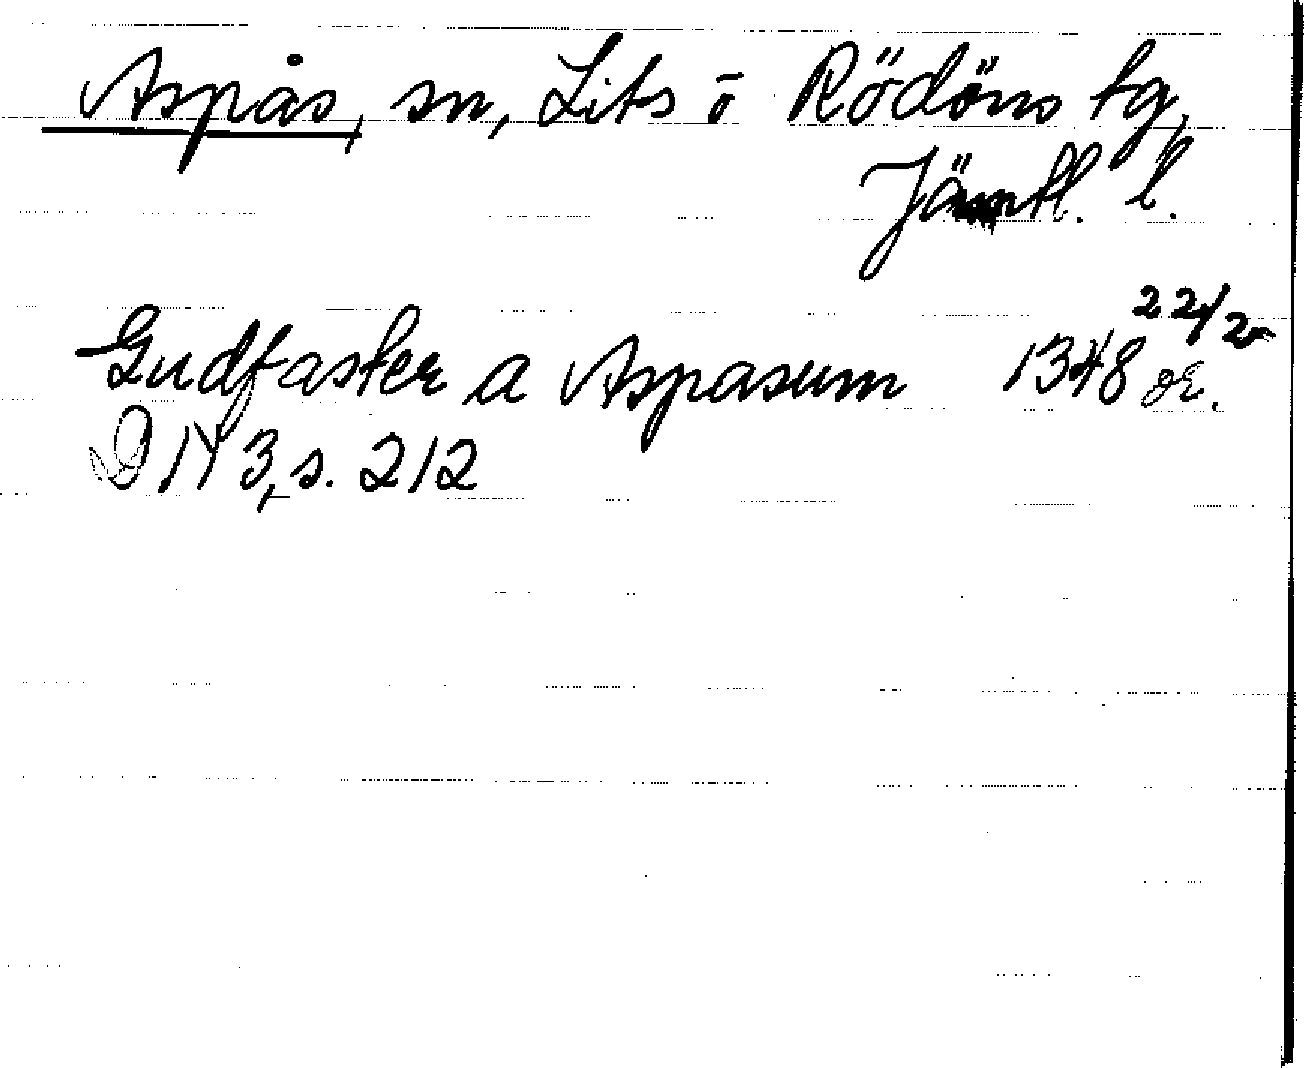 Aspås, sn, Lits o Rödöns tg,
Jämtl. l.
Gudfaster a Aspasum 1348 22/2 or.
DN 3, s. 212